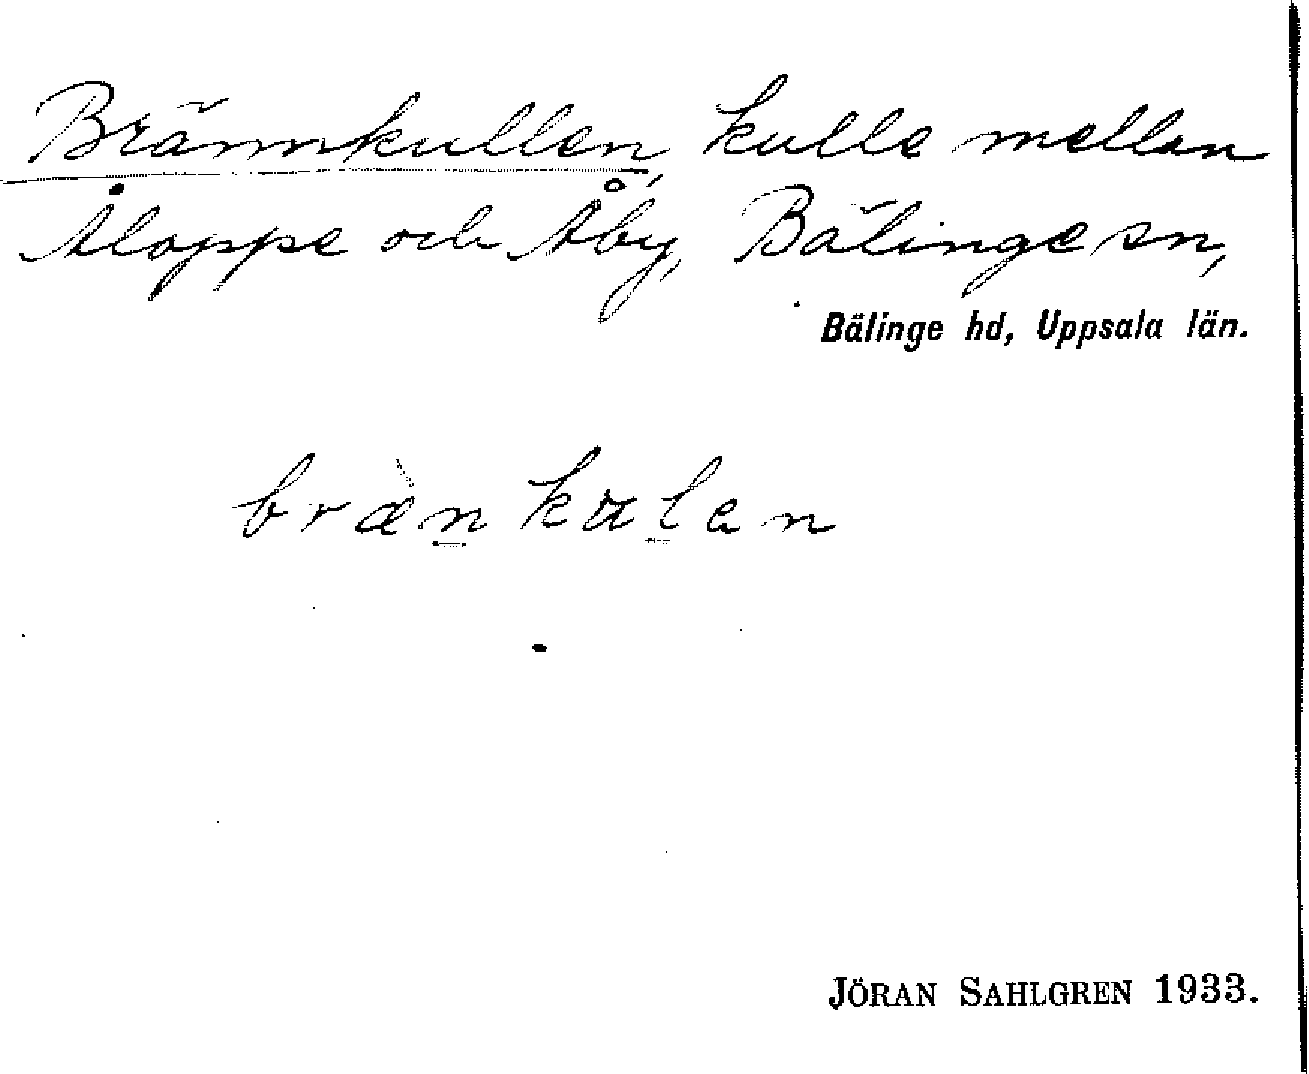 Brännkullen, kulle mellan
Åloppe och Åby, Bälinge sn,
Bälinge hd, Uppsala län.
bræ̀n kulen
JÖRAN SAHLGREN 1933.